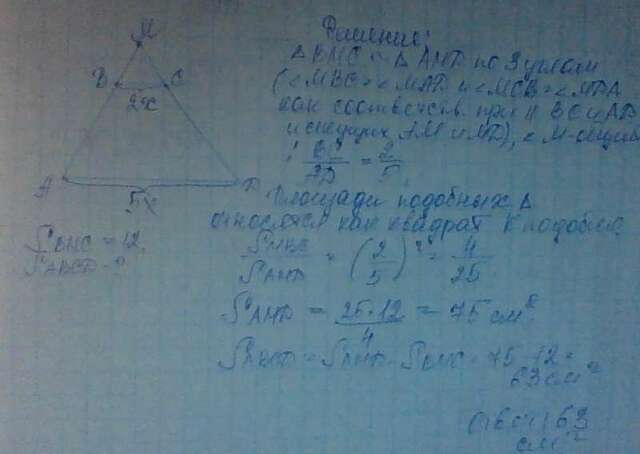 M
B C
2x
A D
5x
S BMC = 12
S ABCD - ?
Решение:
Δ BMC ~ Δ AMD по 3 углам
(∠MBC = ∠MAD и ∠MCB = ∠MDA
как соответств. при || BC и AD
и секущих AM и MD), ∠M-общий
BC/AD = 2/5
Площади подобных Δ
относятся как квадрат k подобия.
S MBC / S AMD = (2/5)² = 4/25
S AMD = 25·12/4 = 75 см²
S ABCD = S AMD - S BMC = 75-12=
63 см²
Ответ 63
см²